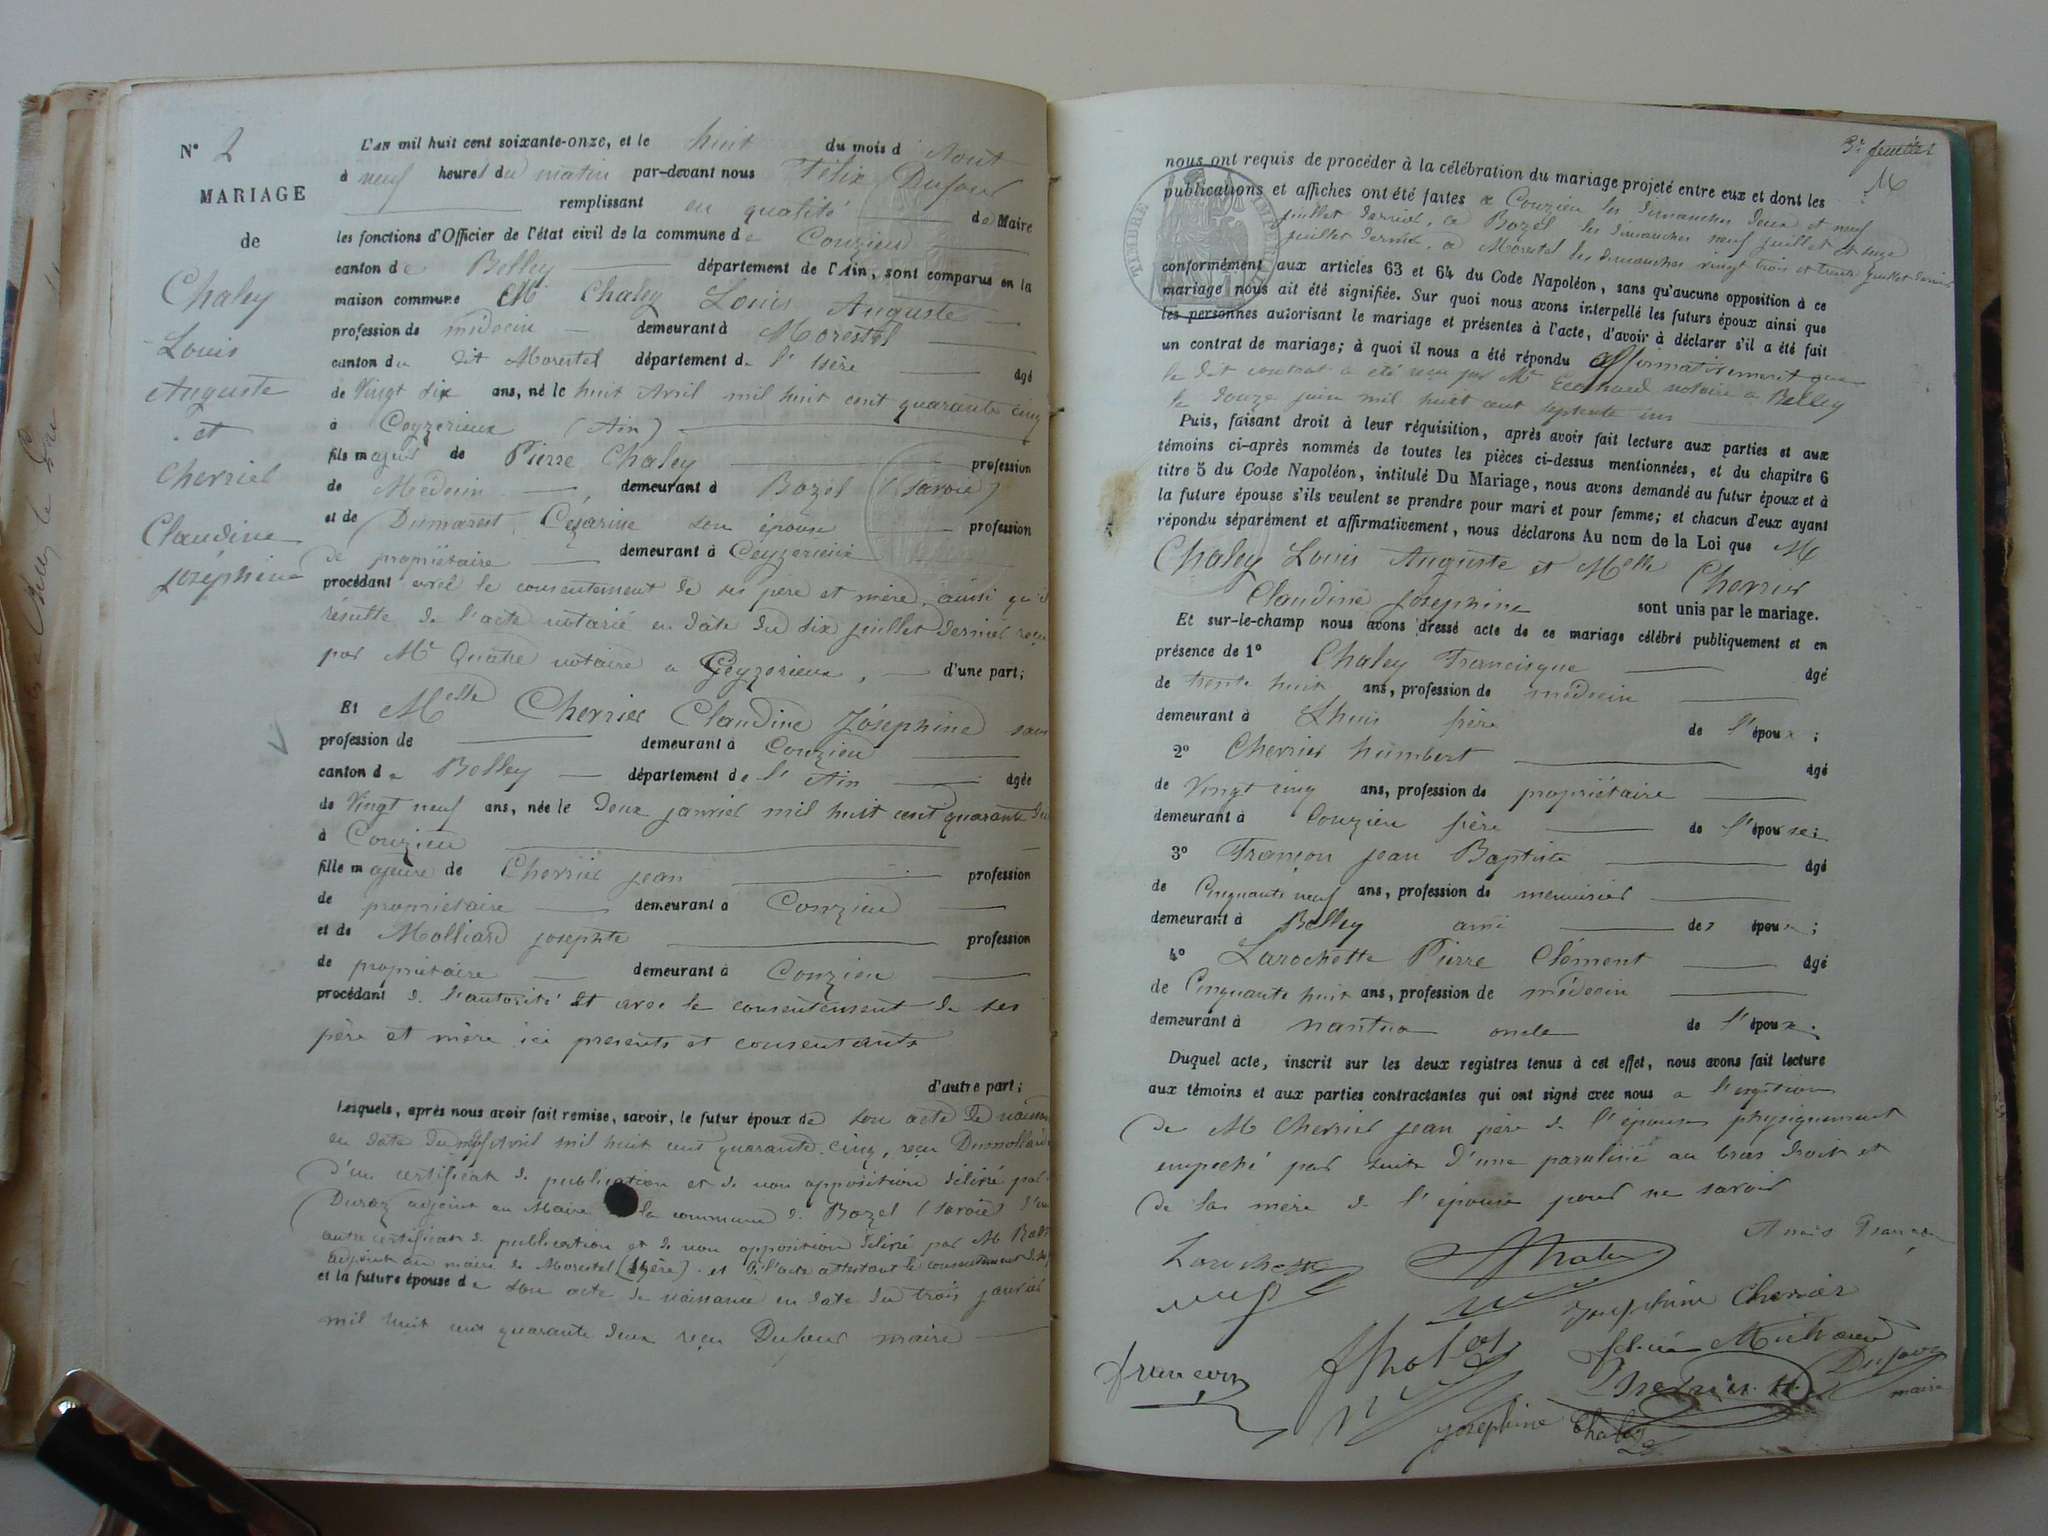 N° 2
MARIAGE
de
Chaley
Louis
Auguste
et
Cherrier
Claudine
joséphine
L'AN mil huit cent soixante-onze, et le huit du mois d'Aout
à neuf heures du matin par-devant nous Félix Dufour
remplissant en qualité de Maire
les fonctions d'Officier de l'état civil de la commune de Conzieu
canton de Belley département de l'Ain, sont comparus en la
maison commune Mr Chaley Louis Auguste
profession de médecin demeurant à Morestel
canton du dit Morestel département de l'Isère âgé
de Vingt six ans, né le huit Avril mil huit cent quarante cinq
à Ceyzerieux (Ain)
fils majeur de Pierre Chaley profession
de Médecin demeurant à Bozel (Savoie)
et de Dumarest Césarine son épouse profession
de propriétaire demeurant à Ceyzerieux
procédant avec le consentement de ses père et mère, ainsi qu'il
résulte de l'acte notarié en date du dix juillet dernier reçu
par Me notaire a Ceyzerieux, d'une part;
Et Melle Cherrier Claudine Joséphine sans
profession de demeurant à Conzieu
canton de Belley département de l'Ain âgée
de Vingt neuf ans, née le deux janvier mil huit cent quarante deux
à Conzieu
fille majeure de Cherrier jean profession
de propriétaire demeurant à Conzieu
et de Molliard josephte profession
de propriétaire demeurant à Conzieu
procédant de l'autorité et avec le consentement de ses
père et mère ici présents et consentants
d'autre part;
Lesquels, après nous avoir fait remise, savoir, le futur époux de son acte de
en date du avril mil huit cent quarante cinq, reçu
d'un certificat de publication et de non opposition délivré par
adjoint au Maire la commune de Bozel (Savoie) d'un
autre certificat de publication et de non opposition délivré par M
adjoint au maire de Morestel (Isère) et de l'acte attestant le consentement
et la future épouse de son acte de naissance en date du trois janvier
mil huit cent quarante deux reçu Dufour maire
3e feuillet
nous ont requis de procéder à la célébration du mariage projeté entre eux et dont les
publications et affiches ont été faites a Conzieu les dimanches deux et neuf
juillet dernier, a Bozel les dimanches neuf juillet et seize
juillet dernier, a Morestel les dimanches vingt trois et trente juillet dernier
conformément aux articles 63 et 64 du Code Napoléon, sans qu'aucune opposition à ce
mariage nous ait été signifiée. Sur quoi nous avons interpellé les futurs époux ainsi que
les personnes autorisant le mariage et présentes à l'acte, d'avoir à déclarer s'il a été fait
un contrat de mariage; à quoi il nous a été répondu affirmativement que
le dit contrat a été reçu par Me notaire a Belley
le douze juin mil huit cent septante un
Puis, faisant droit à leur réquisition, après avoir fait lecture aux parties et aux
témoins ci-après nommés de toutes les pièces ci-dessus mentionnées, et du chapitre 6
titre 5 du Code Napoléon, intitulé Du Mariage, nous avons demandé au futur époux et à
la future épouse s'ils veulent se prendre pour mari et pour femme; et chacun d'eux ayant
répondu séparément et affirmativement, nous déclarons Au nom de la Loi que M
Chaley Louis Auguste et Melle Cherrier
Claudine Josephine sont unis par le mariage.
Et sur-le-champ nous avons dressé acte de ce mariage célébré publiquement et en
présence de 1° Chaley Francisque âgé
de trente huit ans, profession de médecin
demeurant à Lhuis frère de l'époux;
2° Cherrier humbert âgé
de Vingt cinq ans, profession de propriétaire
demeurant à Conzieu frère de l'épouse;
3° Françon jean Baptiste âgé
de Cinquante neuf ans, profession de menuisier
demeurant à Belley ami des époux;
4° Larochette Pierre Clément âgé
de Cinquante huit ans, profession de médecin
demeurant à nantua oncle de l'époux.
Duquel acte, inscrit sur les deux registres tenus à cet effet, nous avons fait lecture
aux témoins et aux parties contractantes qui ont signé avec nous a l'exception
de M Cherrier jean père de l'épouse physiquement
empeché par suite d'une paralisie au bras droit et
de la mère de l'épouse pour ne savoir
Larochette
Josephine Cherrier
françon
Dufour
maire
josephine Chaley
TIMBRE IMPERIAL